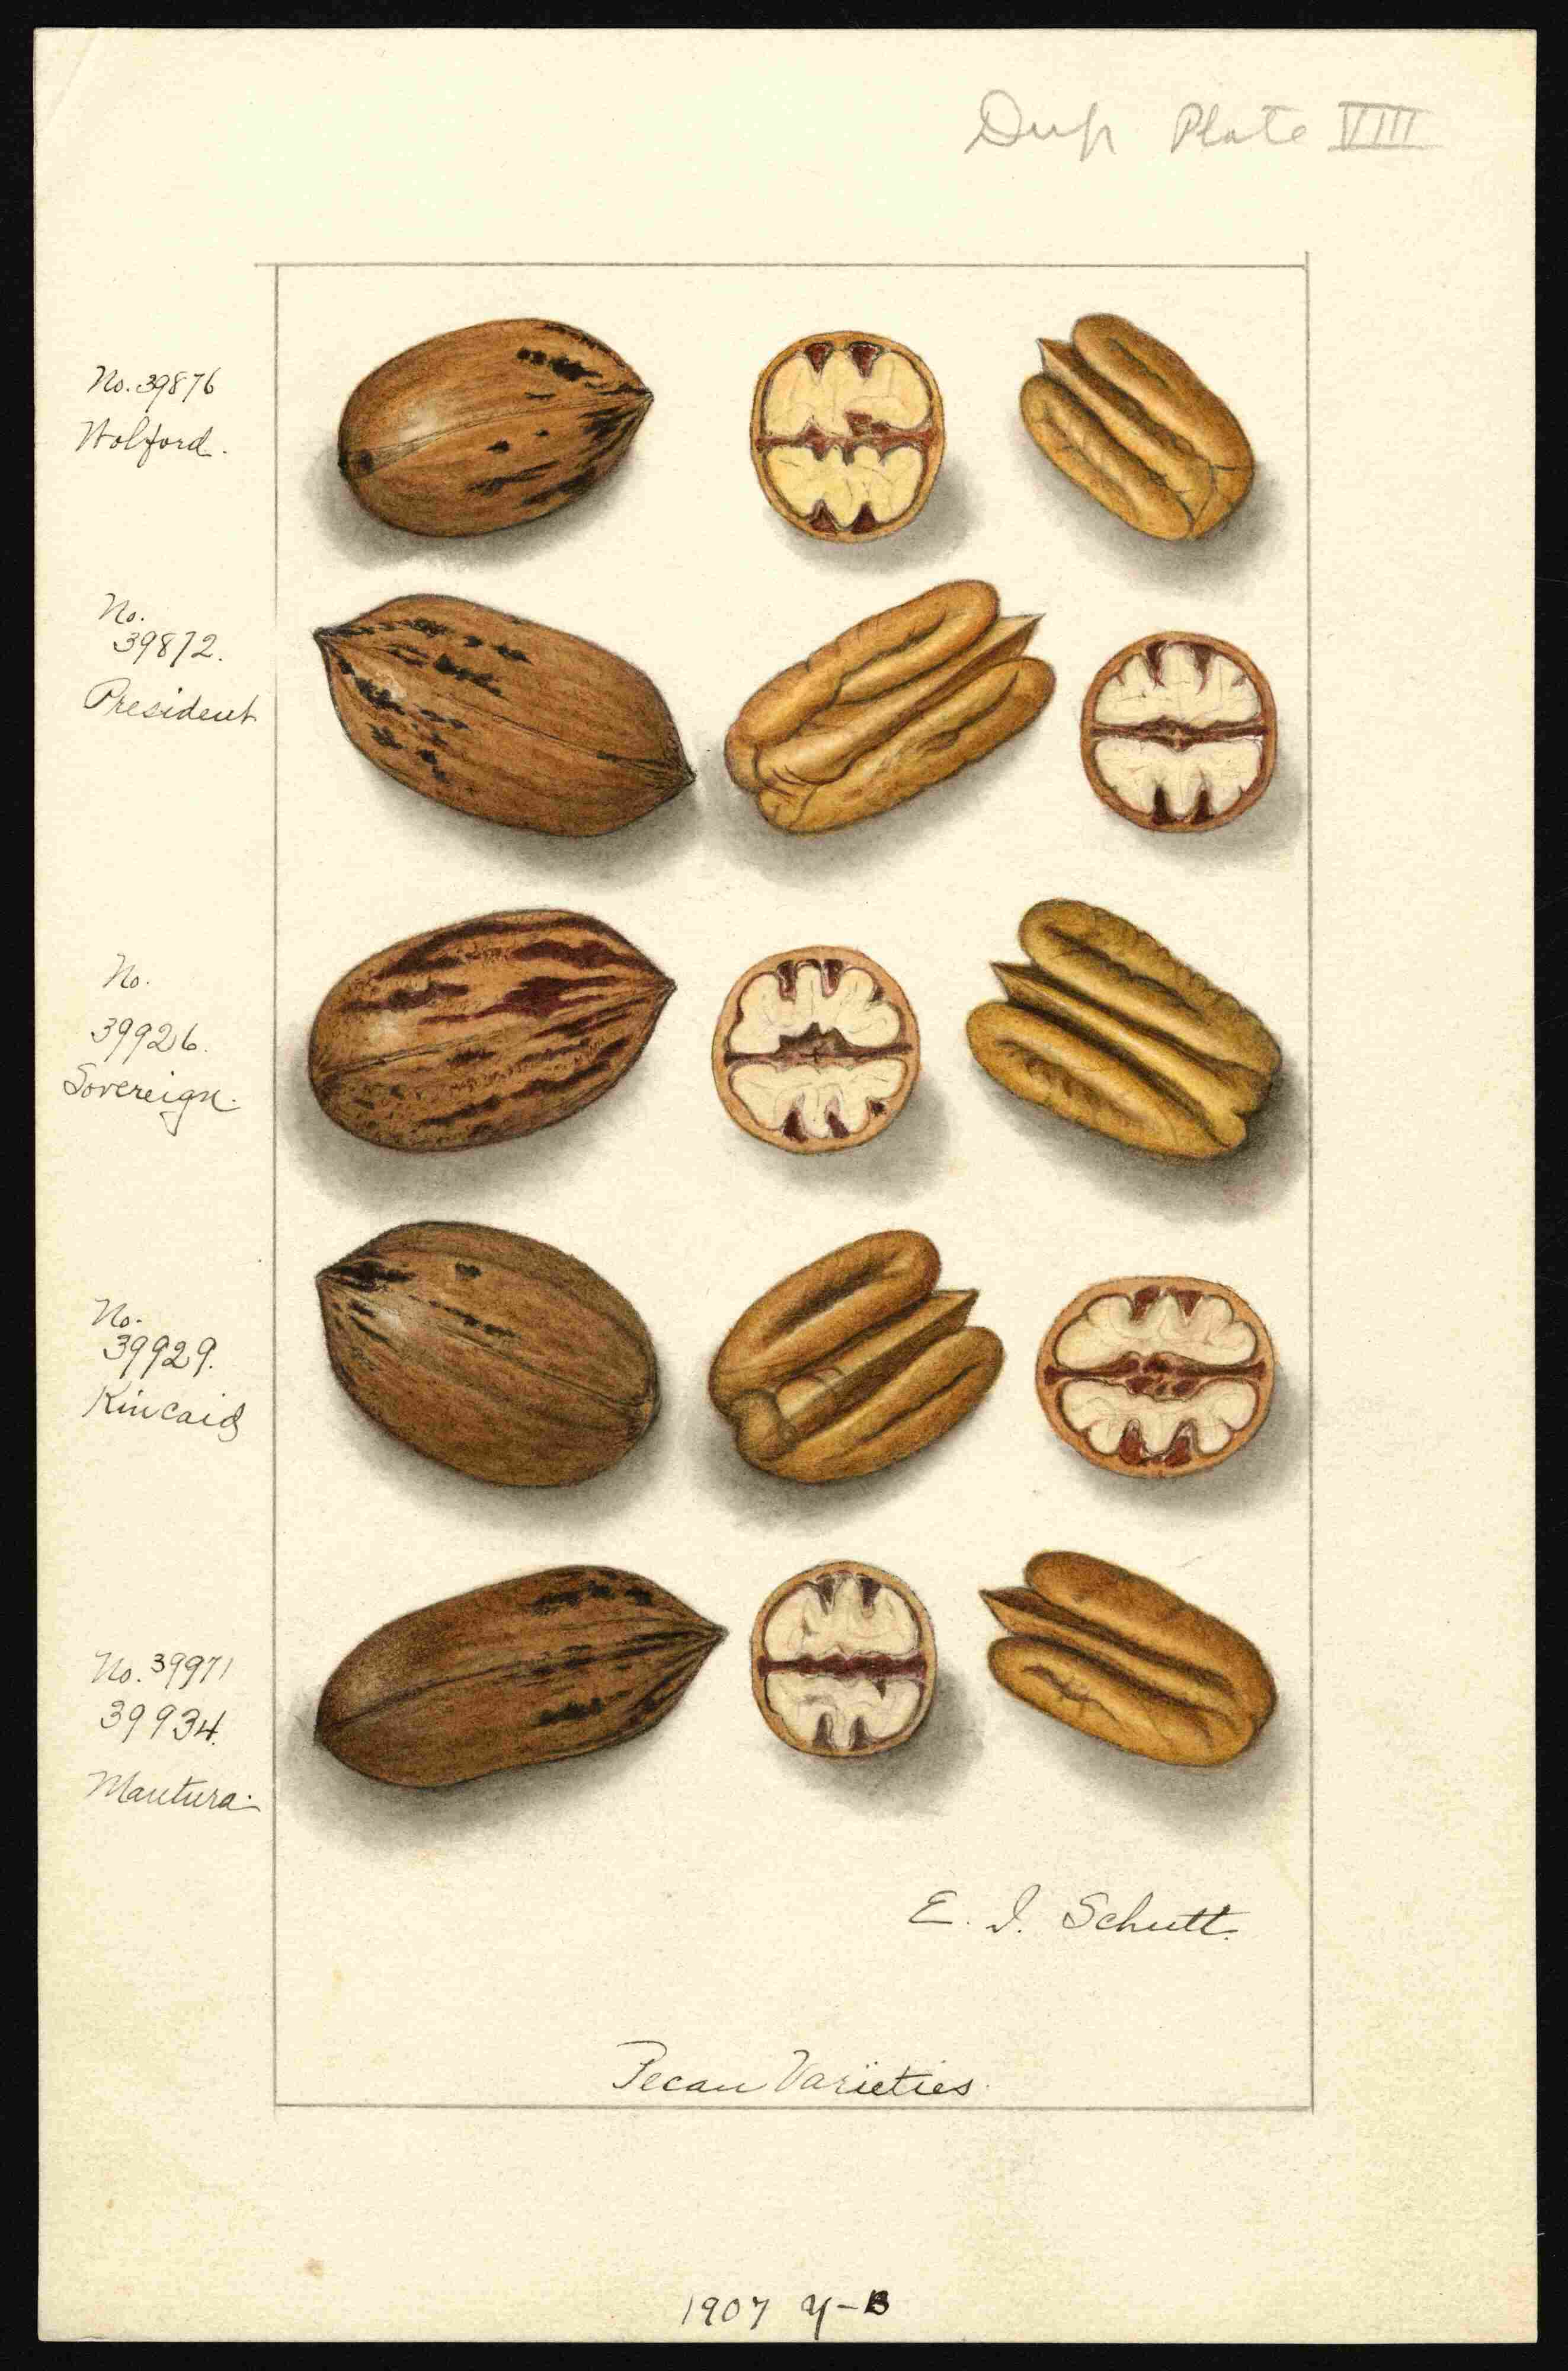 Dup Plate VIII
No. 39876
Wolford.
No.
39872.
President
No.
39926.
Sovereign.
No.
39929.
Kincaid
No. 39971
39934.
Mantura.
E. I. Schutt.
Pecan Varieties.
1907 Y-B